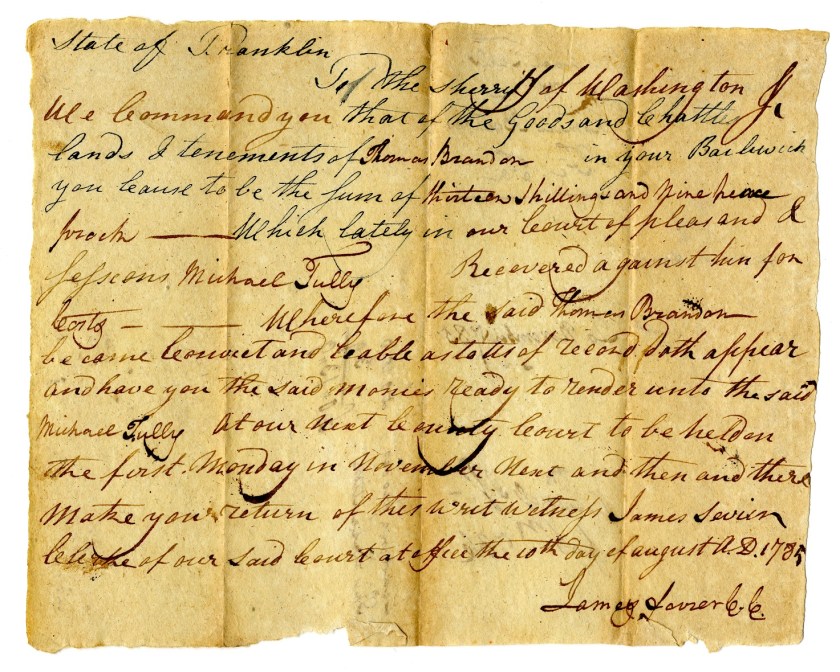 State of Franklin
To the Sherriff of Washington
We Command you that of the Goods and Chattles
lands & tenements of Thomas Brandon in your Bailiwick
you cause to be the Sum of thirteen Shillings and Nine pence
prock — Which lately in our Court of pleas and &
Sessions Michael Tully Recovered against him for
Costs — Wherefore the said Thomas Brandon
became Convict and leable as to us of record doth appear
and have you the said monies ready to render unto the said
Michael Tully At our Next County Court to be helden
the first Monday in November Next and then and there
Make your return of this writ witness James Sevier
Clerke of our said Court at office the 10th day of august A.D. 1785
James Sevier C.C.